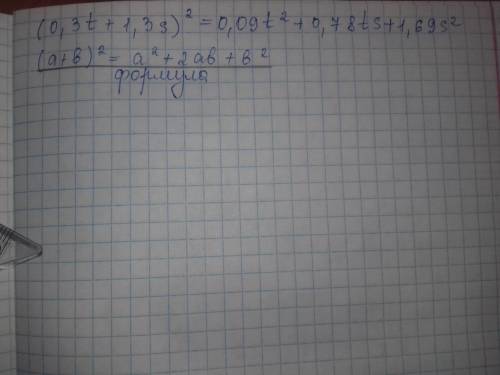 (0,3t + 1,3s)² = 0,09t² + 0,78ts + 1,69s²
(а+в)² = а² + 2ав + в²
формула